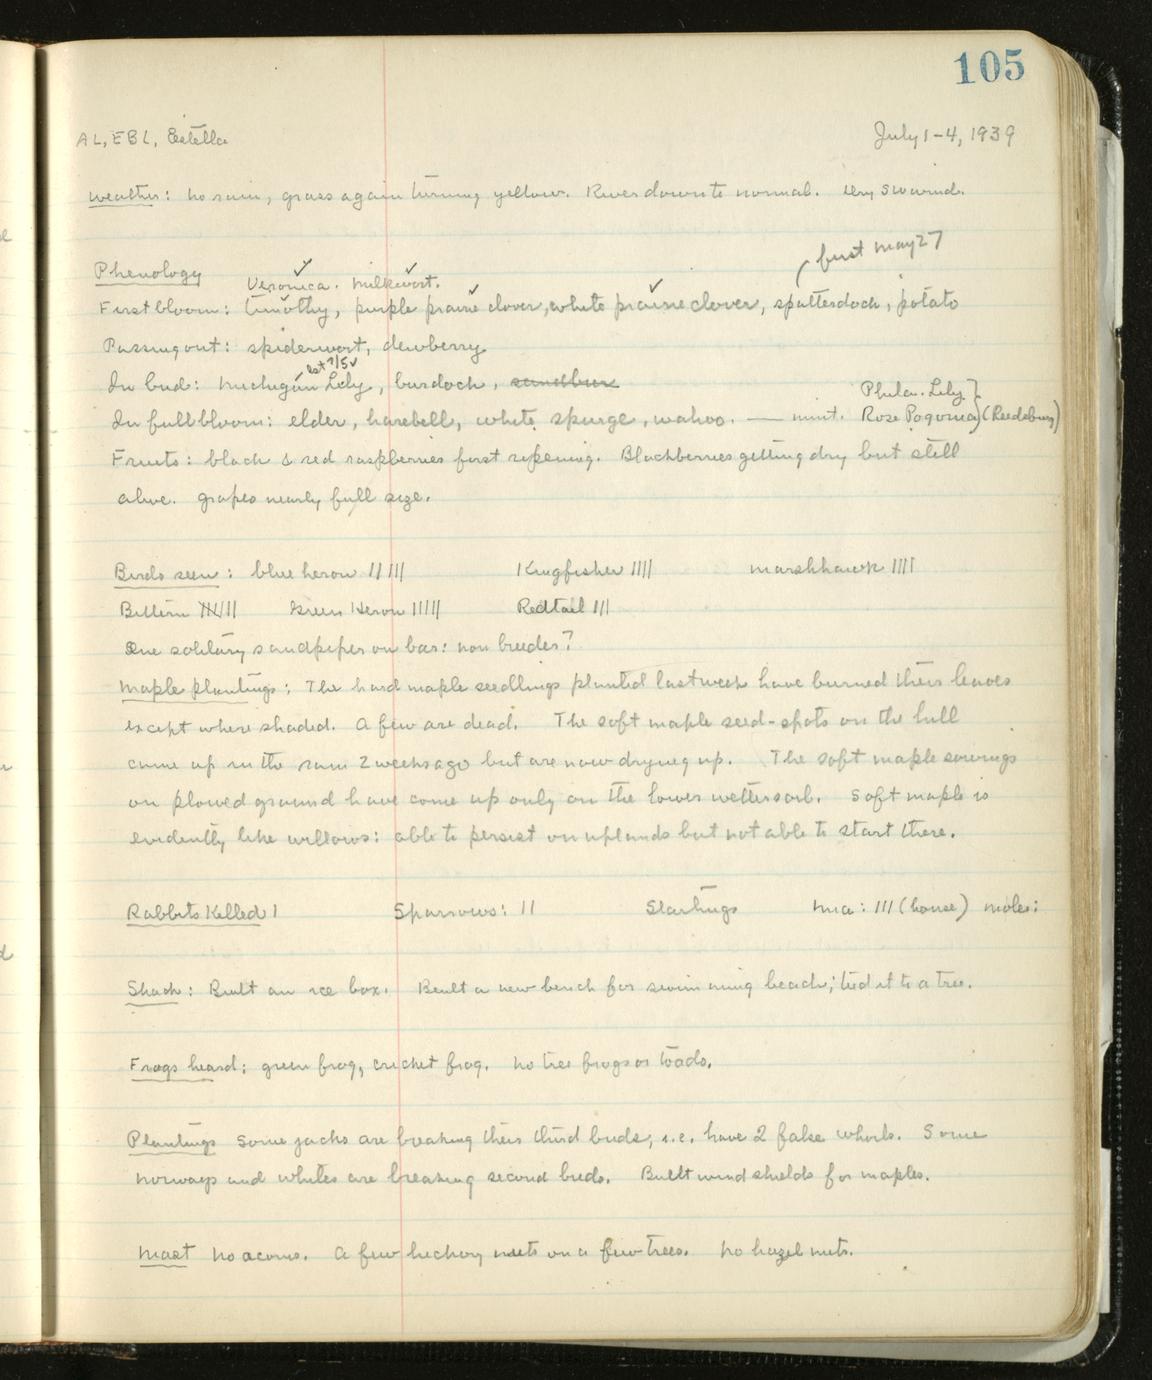 105
AL, EBL, Estella July 1-4, 1939
Weather: no rain, grass again turning yellow. River down to normal. Very SW wind.
first May 27
Phenology
Veronica. milkwort.
First bloom: timothy, purple prairie clover, white prairie clover, spatterdock, potato
Passing out: spiderwort, dewberry
1st 7/5
In bud: Michigan Lily, burdock, sandbur
Phila. Lily
In full bloom: elder, harebell, white spurge, wahoo. — mint. Rose Pogonia (Reedsburg)
Fruits: black & red raspberries first ripening. Blackberries getting dry but still
alive. grapes nearly full size.
Birds seen: blue heron |||||| Kingfisher |||| marshhawk ||||
Bittern |||| || Green Heron ||||| Redtail |||
One solitary sandpiper on bar: non breeder?
Maple plantings: The hard maple seedlings planted last week have burned their leaves
except where shaded. A few are dead. The soft maple seed-spots on the hill
came up in the rain 2 weeks ago but are now drying up. The soft maple sowings
on plowed ground have come up only on the lower wetter soil. Soft maple is
evidently like willows: able to persist on uplands but not able to start there.
Rabbits Killed 1 Sparrows: || Starlings mice: ||| (house) moles:
Shack: Built an ice box. Built a new bench for swimming beach; tied it to a tree.
Frogs heard: green frog, cricket frog. No tree frogs or toads.
Plantings Some jacks are breaking their third buds, i.e. have 2 false whorls. Some
norways and whites are breaking second buds. Built wind shields for maples.
Mast No acorns. A few hickory nuts on a few trees. No hazel nuts.